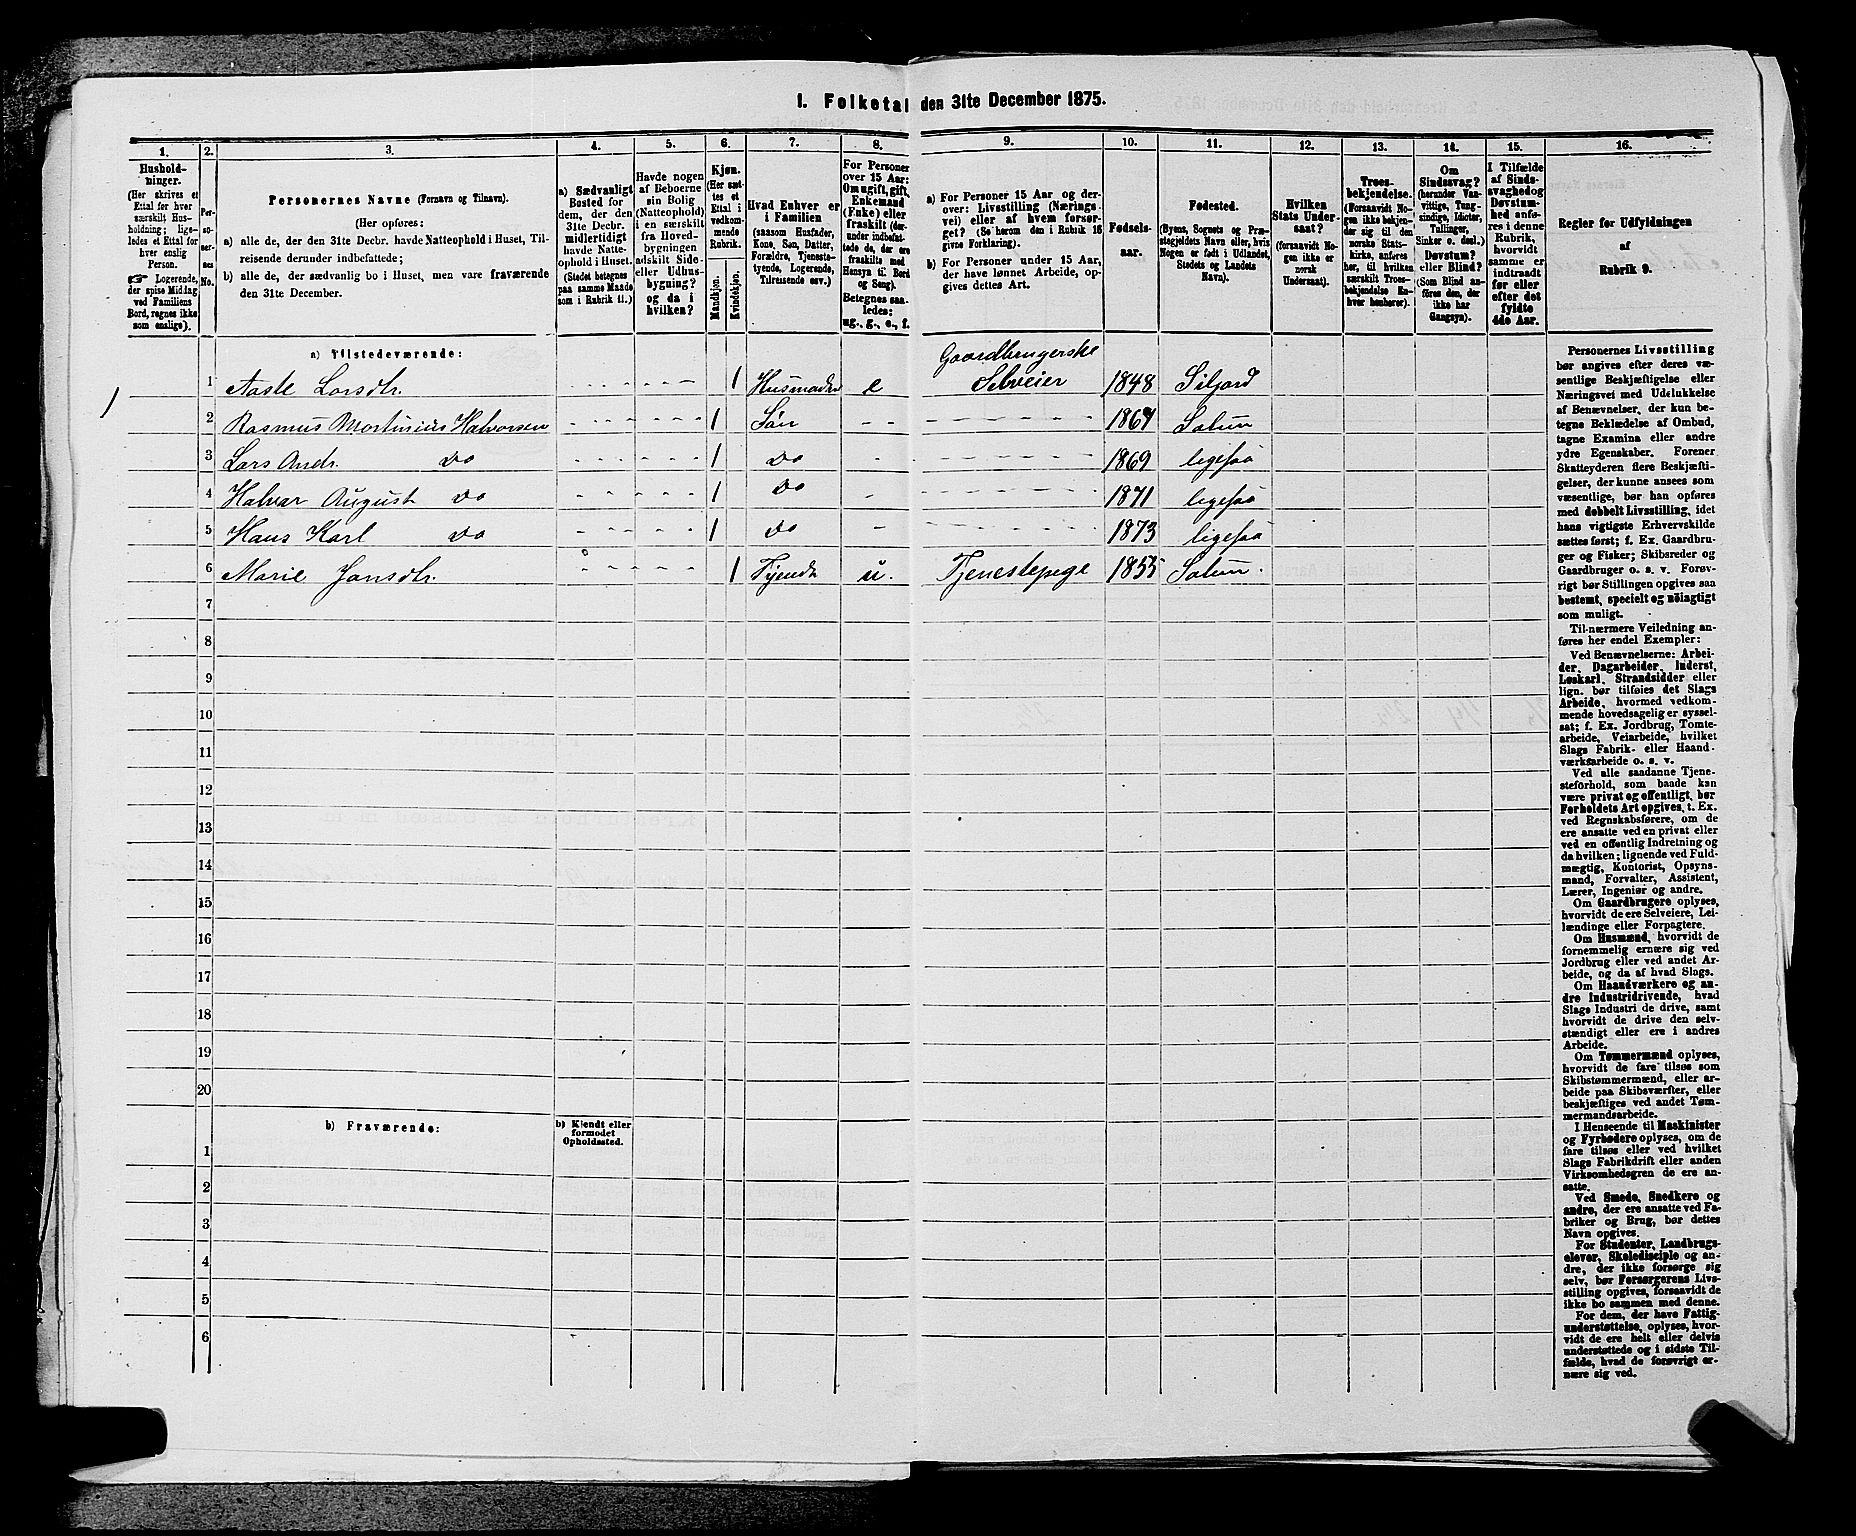 1. Folketal den 31te December 1875.
1.
Hushold-
ninger.
(Her skrives et
Ettal for hver
særskilt Hus-
holdning; lige-
ledes et Ettal for
hver enslig
Person.
☞ Logerende,
der spise Middag
ved Familiens
Bord, regnes ikke
som enslige).
2.
Per-
soner-
nes
No.
3.
Personernes Navne (Fornavn og Tilnavn).
(Her opføres:
a) alle de, der den 31te Decbr. havde Natteophold i Huset, Til-
reisende derunder indbefattede;
b) alle de, der sædvanlig bo i Huset, men vare fraværende
den 31te December.
4.
a) Sædvanligt
Bosted for
dem, der den
31te Decbr.
midlertidigt
havde Natte-
ophold i Huset.
(Stedet betegnes
paa samme Maade
som i Rubrik 11.)
5.
Havde nogen
af Beboerne
sin Bolig
(Natteophold)
i en særskilt
fra Hoved-
bygningen
adskilt Side-
eller Udhus-
bygning?
og da i
hvilken?
6.
Kjøn.
(Her sæt-
tes et
Ettal i
vedkom-
mende
Rubrik.
Mandkjøn.
Kvindekjøn.
7.
Hvad Enhver er
i Familien
(saasom Husfader,
Kone, Søn, Datter,
Forældre, Tjeneste-
tyende, Logerende,
Tilreisende osv.)
8.
For Personer
over 15 Aar:
Om ugift, gift,
Enkemand
(Enke) eller
fraskilt (der-
under indbefat-
tede de, der ere
fraskilte med
Hensyn til Bord
og Seng).
Betegnes saa-
ledes:
ug., g., e., f.
9.
a) For Personer 15 Aar og der-
over: Livsstilling (Nærings-
vei) eller af hvem forsør-
get? (Se herom den i Rubrik 16
givne Forklaring).
b) For Personer under 15 Aar,
der have lønnet Arbeide, op-
gives dettes Art.
10.
Fødsels-
aar.
11.
Fødested.
(Byens, Sognets og Præ-
stegjeldets Navn eller, hvis
Nogen er født i Udlandet,
Stedets og Landets
Navn).
12.
Hvilken
Stats Under-
saat?
(forsaavidt No-
gen ikke er
norsk
Undersaat).
13.
Troes-
bekjendelse.
(Forsaavidt No-
gen ikke bekjen-
der sig til den
norske Stats-
kirke, anføres
her, til hvilken
særskilt Troes-
bekjendelse En-
hver henhører).
14.
Om
Sindssvag?
(herunder Van-
vittige, Tung-
sindige, Idioter,
Tullinger,
Sinker o. desl.)
Døvstum?
eller Blind?
(Som Blind an-
føres den, der
ikke har
Gangsyn).
15.
I Tilfælde
af Sinds-
svaghed og
Døvstum-
hed anfø-
res i denne
Rubrik,
hvorvidt
samme er
indtraadt
før eller
efter det
fyldte
4de Aar.
16.
Regler for Udfyldningen
af
Rubrik 9.
a) Tilstedeværende:
1 1 Aasle Larsdtr. 1 Husmoder e Gaardbrugerske Selveier 1848 Siljord
2 Rasmus Martinius Halvorsen 1 Søn 1867 Solum
3 Lars Andr. Do 1 Do 1869 ligesaa
4 Halvar August Do 1 Do 1871 ligesaa
5 Hans Karl Do 1 Do 1873 ligesaa
6 Marie Jansdtr. 1 Tjendt u. Tjenestepige 1855 Solum.
7
8
9
10
11
12
13
14
15
16
17
18
19
20
b) Fraværende:
b) Kjendt eller
formodet
Opholdssted.
1
2
3
4
5
6
Personernes Livsstilling
bør angives efter deres væ-
sentlige Beskjæftigelse eller
Næringsvei med Udelukkelse
af Benævnelser, der kun be-
tegne Beklædelse af Ombud,
tagne Examina eller andre
ydre Egenskaber. Forener
Skatteyderen flere Beskjæfti-
gelser, der kunne ansees som
væsentlige, bør han opføres
med dobbelt Livsstilling, idet
hans vigtigste Erhvervskilde
sættes først; f. Ex. Gaardbru-
ger og Fisker; Skibsreder og
Gaardbruger o. s. v. Forøv-
rigt bør Stillingen opgives saa
bestemt, specielt og nöiagtigt
som muligt.
Til nærmere Veiledning an-
føres her endel Exempler:
Ved Benævnelserne: Arbei-
der, Dagarbeider, Inderst,
Løskarl, Strandsidder eller
lign. bør tilføies det Slags
Arbeide, hvormed vedkom-
mende hovedsagelig er syssel-
sat; f. Ex. Jordbrug, Tomte-
arbeide, Veiarbeide, hvilket
Slags Fabrik- eller Haand-
værksarbeide o. s. v.
Ved alle saadanne Tjene-
steforhold, som baade kan
være privat og offentligt, bør
Forholdets Art opgives, t. Ex.
ved Regnskabsførere, om de
ere ansatte ved en privat eller
ved en offentlig Indretning og
da hvilken; lignende ved Fuld-
mægtig, Kontorist, Opsyns-
mand, Forvalter, Assistent,
Lærer, Ingeniør og andre.
Om Gaardbrugere oplyses,
hvorvidt de ere Selveiere, Lei-
lændinge eller Forpagtere.
Om Husmænd, hvorvidt de
fornemmelig ernære sig ved
Jordbrug eller ved andet Ar-
beide, og da af hvad Slags.
Om Haandværkere og an-
dre Industridrivende, hvad
Slags Industri de drive, samt
hvorvidt de drive den selv-
stændigt eller ere i andres
Arbeide.
Om Tømmermænd oplyses,
hvorvidt de fare tilsøs som
Skibstømmermænd, eller ar-
beide paa Skibsværfter, eller
beskjæftiges ved andet Tøm-
mermandsarbeide.
I Henseende til Maskinister
og Fyrbødere oplyses, om de
fare tilsøs eller ved hvilket
Slags Fabrikdrift eller anden
Virksomhedsgren de ere an-
satte.
Ved Smede, Snedkere og
andre, der ere ansatte ved Fa-
briker og Brug, bør dettes
Navn opgives.
For Studenter, Landbrugs-
elever, Skoledisciple og an-
dre, der ikke forsørge sig
selv, bør Forsørgerens Livs-
stilling opgives, forsaavidt de
ikke bo sammen med denne.
For dem, der have Fattig-
understøttelse, oplyses, hvor-
vidt de ere helt eller delvis
understøttede og i sidste Til-
fælde, hvad de forøvrigt er-
nære sig ved.